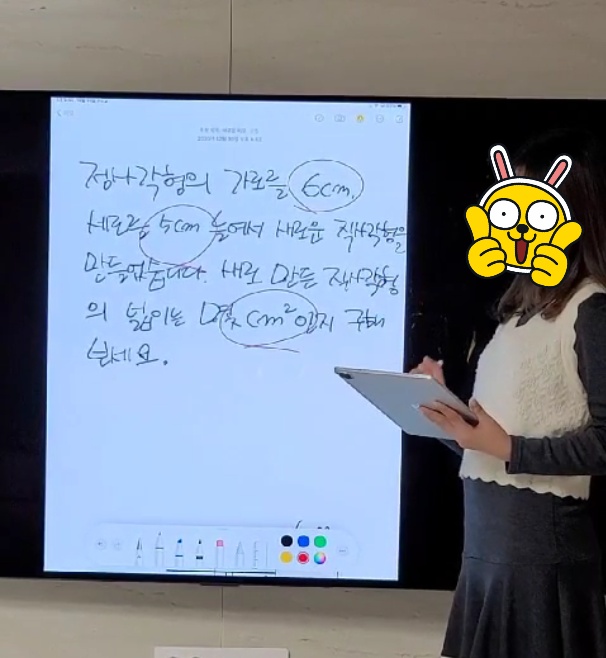 정사각형의 가로를 6cm,
세로를 5cm 늘여서 새로운 직사각형을
만들었습니다. 새로 만든 직사각형
의 넓이는 몇 cm² 인지 구해
보세요.